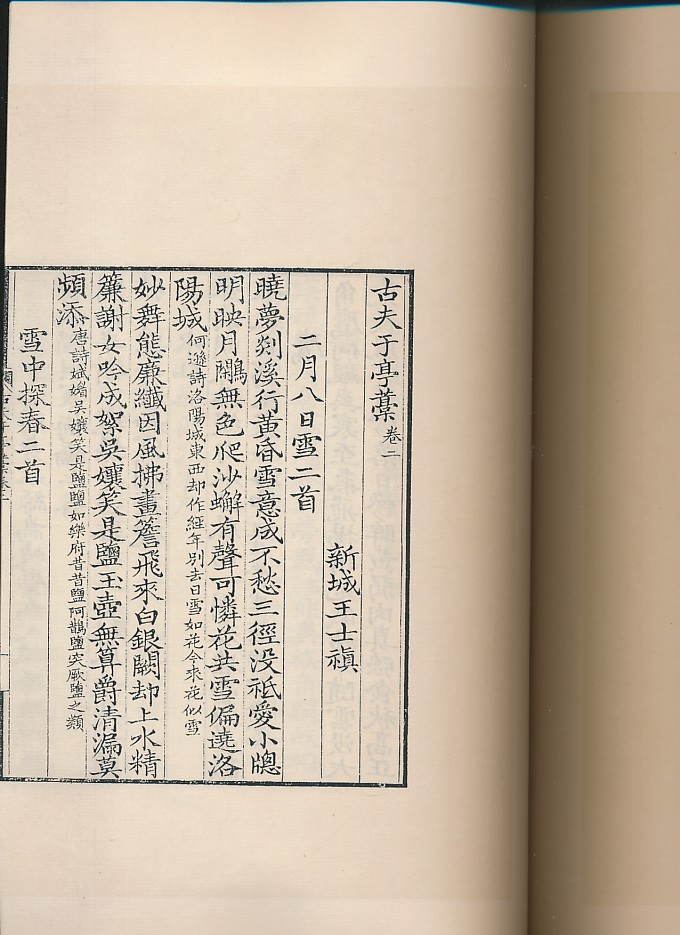 古夫于亭藁 卷二
新城王士禛
二月八日雪二首
曉夢剡溪行黃昏雪意成不愁三徑没祇愛小牕
明映月鷴無色爬沙蠏有聲可憐花共雪偏遶洛
陽城 何遜詩洛陽城東西却作經年别去日雪如花今來花似雪
妙舞態廉纖因風拂畫簷飛來白銀闕却上水精
簾謝女吟成絮吳孃笑是鹽玉壺無算爵清漏莫
頻添 唐詩媚吳孃笑是鹽鹽如樂府昔昔鹽阿鵲鹽突厥鹽之類
雪中探春二首